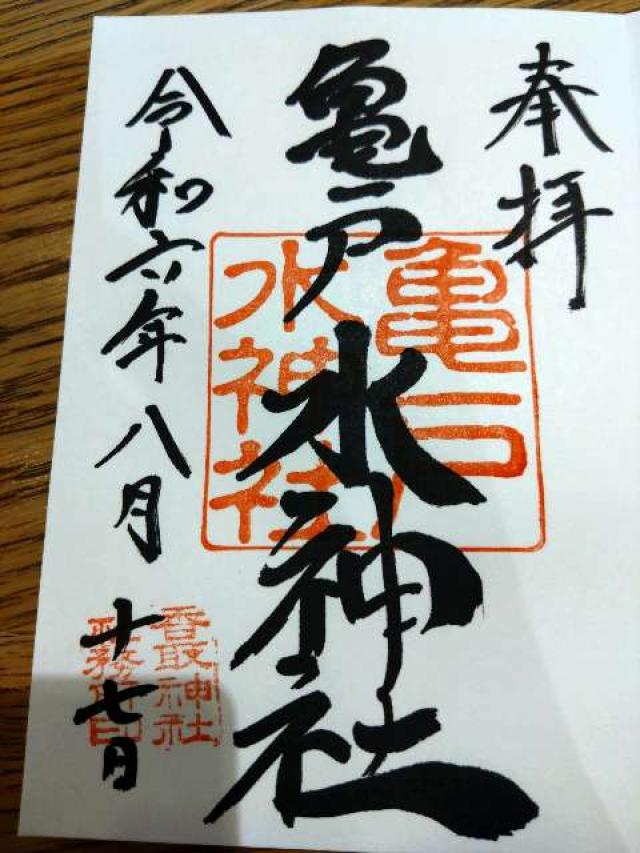 奉拝
亀戸水神社
亀戸
水神社
令和六年八月十七日
香取神社
社務所印